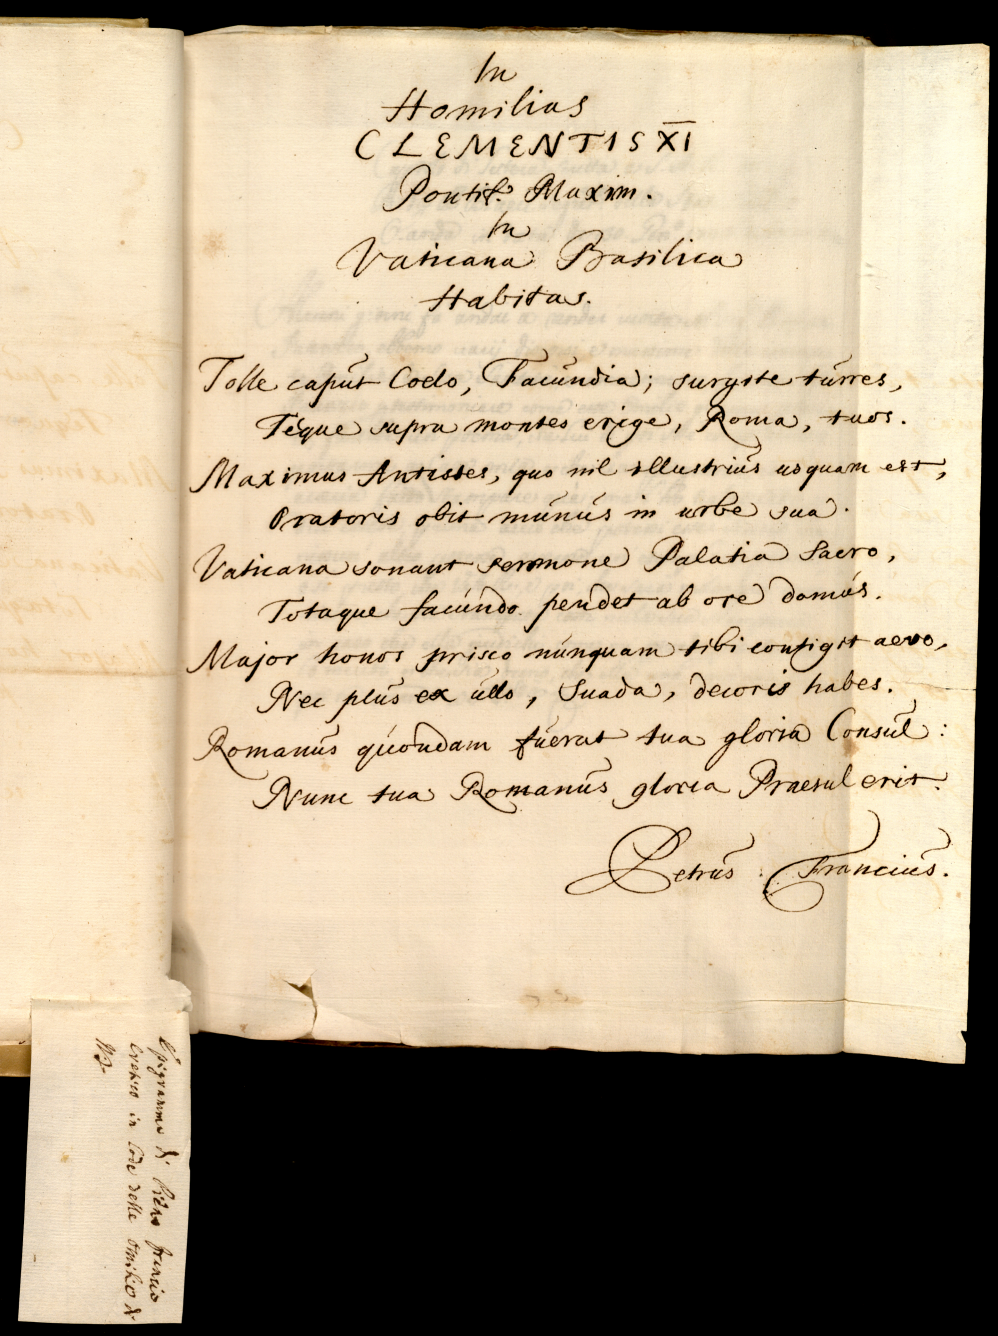 In
Homilias
CLEMENTIS XI
Pontif. Maxim.
In
Vaticana Basilica
Habitas.
Tolle caput Coelo, Facundia; surgite turres,
Teque supra montes erige, Roma, tuos.
Maximus Antistes, quo nil illustrius usquam est,
Oratoris obit munus in urbe sua.
Vaticana sonant sermone Palatia Sacro,
Totaque facundo pendet ab ore domus.
Major honos prisco nunquam tibi contigit aevo,
Nec plus ex ullo, Suada, decoris habes.
Romanus quondam fuerat tua gloria Consul:
Nunc tua Romanus gloria Praesul erit.
Petrus Francius.
Epigramma di Piero francio
Eretico in lode delle Omilie di